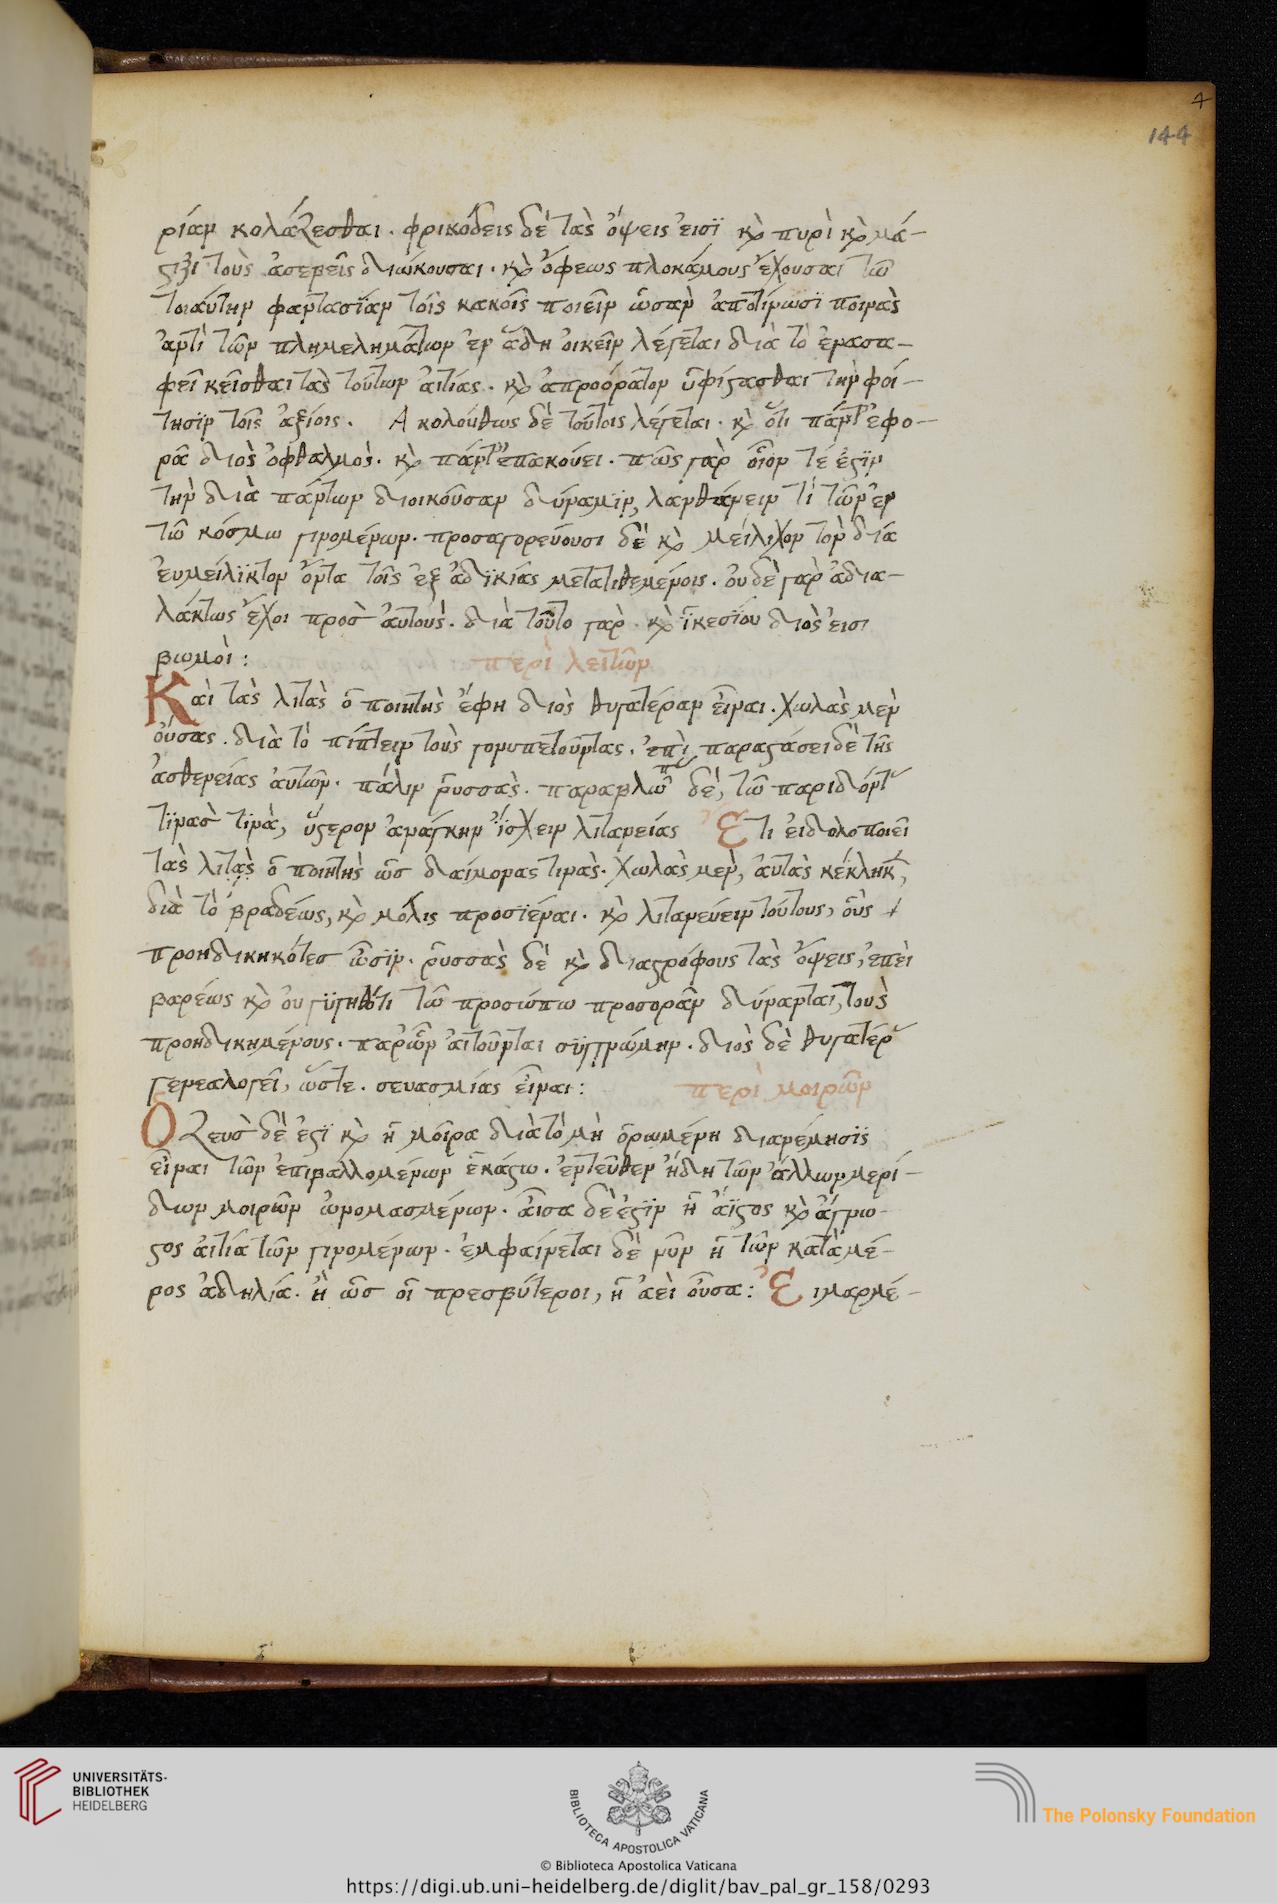 4
144
ρίαν κολάζεσθαι · φρικώδεις δὲ τὰς ὄψεις εἰσῒ κὶ πυρὶ κὶ μά-
στιξι τοὺς ἀσεβεῖς διώκουσαι · κὶ ὄφεως πλοκάμους ἔχουσαι τῶ
τοιάυτην φαντασΐαν τόῖς κακοῖς ποιεῖν ὧσὰν ἀποτίνωσϊ ποινὰς
ἀντὶ τῶν πλημελημάτων ἐν ἅδη ὀικεῖν λέγεται διὰ τὸ ἐνασα-
φεῖ κεῖσθαι τὰς τούτων ἀιτίας · κὶ ἀπροόρατον ὑφίστασθαι τὴν φοί-
τησϊν τοῖς ἀξίοις · Ακολούθως δὲ τούτοις λέγεται · κὶ ὅτι πάντ' ἐφο-
ρᾶ διὸς ὀφθαλμὸς · κὶ πάντ' ἐπακούει · πῶς γὰρ οἷόν τέ ἐστϊν
τὴν διὰ πάντων διοικοῦσαν δύναμϊν, λανθάνειν τί τῶν ἐν
τῶ κόσμω γινομένων · προσαγορεύουσι δὲ κὶ μείλιχον τὸν δία
ἐυμείλϊκτον ὄντα τοῖς ἐξ ἀδϊκίας μετατιθεμένοις · ὀυδὲ γὰρ ἀδια-
λάκτως ἔχοι προσ ἀυτοὺς · διὰ τοῦτο γὰρ · κὶ ἱκεσΐου διὸς εἰσι
βωμοὶ : περὶ λειτῶν
Καὶ τὰς λιτὰς ὁ ποιητὴς ἔφη διὸς θυγατέραν εἶναι · χωλὰς μὲν
ὀύσας · διὰ τὸ πίπτειν τοὺς γονυπετοῦντας · ἐπὶ παραστάσει δὲ τῆς
ἀσθενείας ἀυτῶν · πάλιν ῥυσσὰς · παραβλῶπ δὲ, τῶ παριδόντ
τϊνασ τϊνὰ, ὕστερον ἀνάγκην ἴσχειν λιτανείας Ετι ἐιδολοποιεῖ
τὰς λιτὰς ὁ ποιητὴς ὡσ δαίμονας τινὰς · χωλὰς μὲν, ἀυτὰς κέκληκ,
διὰ τὸ βραδέως, κὶ μόλις προσϊέναι · κὶ λιτανεύειν τούτους, οὓς
προηδικηκότεσ ὦσϊν · ῥυσσὰς δὲ κὶ διαστρόφους τὰς ὄψεις, ἐπεὶ
βαρέως κὶ ὀυ γϋγηθότι τῶ προσώπω προσορᾶν δύνανται, τοὺς
προηδικημένους · παρ' ὧν ἀιτοῦνται συγγνώμην · διὸς δὲ θυγατέρ
γενεαλογεῖ, ὥστε · σευασμίας εἶναι : περὶ μοιρῶν
Ὁ Ζευσ δὲ ἐστϊ κὶ ἡ μοῖρα διὰ τὸ μὴ ὁρωμένη διανέμησϊς
εἶναι τῶν ἐπιβαλλομένων ἑκάστω · ἐντεῦθεν ἤδη τῶν ἄλλων μερί-
δων μοιρῶν ὠνομασμένων · ἆισα δὲ ἐστϊν ἡ ἄϊστος κὶ ἄγνω-
στος ἀιτία τῶν γινομένων · ἐμφαίνεται δὲ νῦν ἡ τῶν κατὰ μέ-
ρος ἀδηλία · ἢ ὡσ οἱ πρεσβύτεροι, ἡ ἀεὶ ὀῦσα : Ειμαρμέ-
UNIVERSITÄTS-
BIBLIOTHEK
HEIDELBERG
BIBLIOTECA APOSTOLICA VATICANA
The Polonsky Foundation
© Biblioteca Apostolica Vaticana
https://digi.ub.uni-heidelberg.de/diglit/bav_pal_gr_158/0293